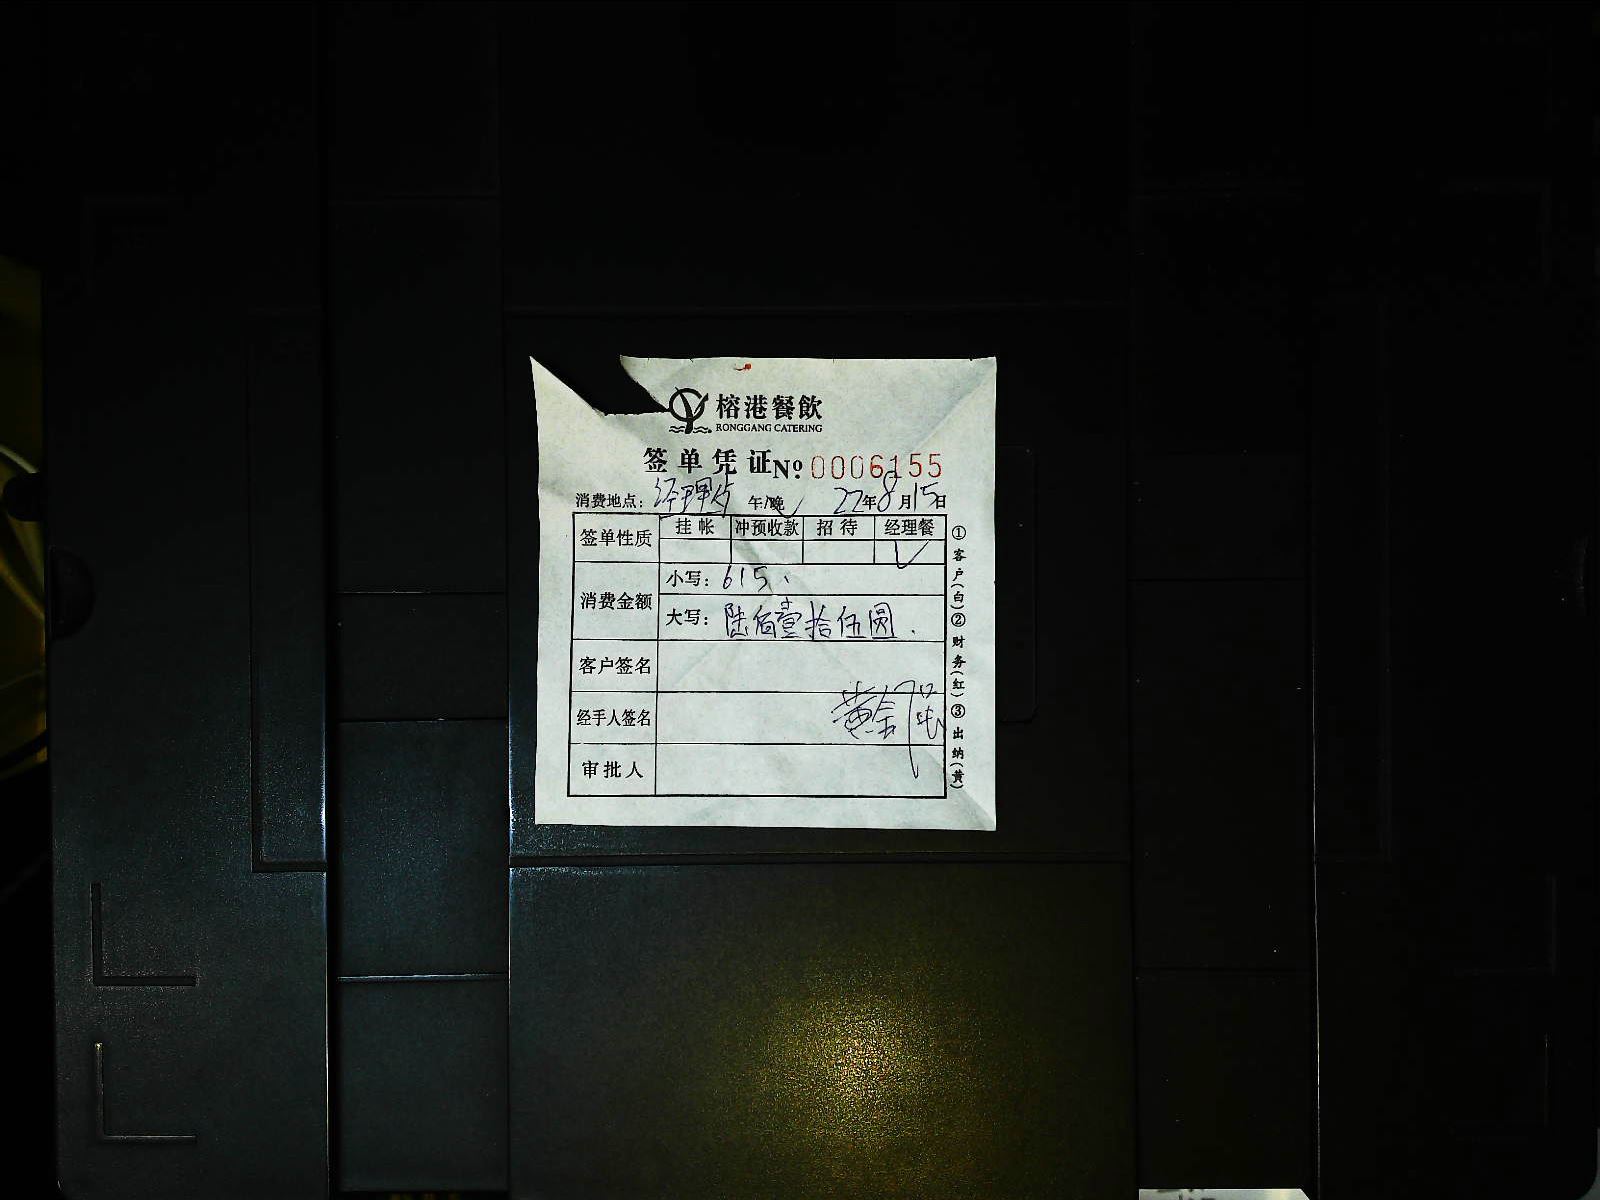 榕港餐飲
RONGGANG CATERING
签单凭证 No: 0006155
消费地点: 经理 午/晚 22年8月15日
签单性质 挂帐 冲预收款 招待 经理餐
消费金额 小写: 615.
大写: 陆佰壹拾伍圆.
客户签名
经手人签名 黄金
审批人
①客户(白)②财务(红)③出纳(黄)